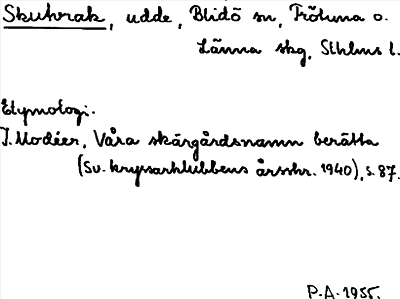 Skuhrak, udde, Blidö sn, Frötuna o.
Länna skg, Sthlms l.
Etymologi.
I. Modéer, Våra skärgårdsnamn berätta
(Sv. kryssarklubbens årsskr. 1940), s. 87.
P.A. 1955.